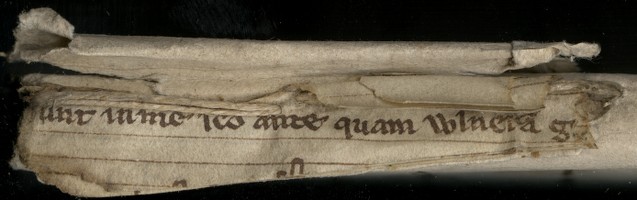 unt in me ico ante quam vulnera g